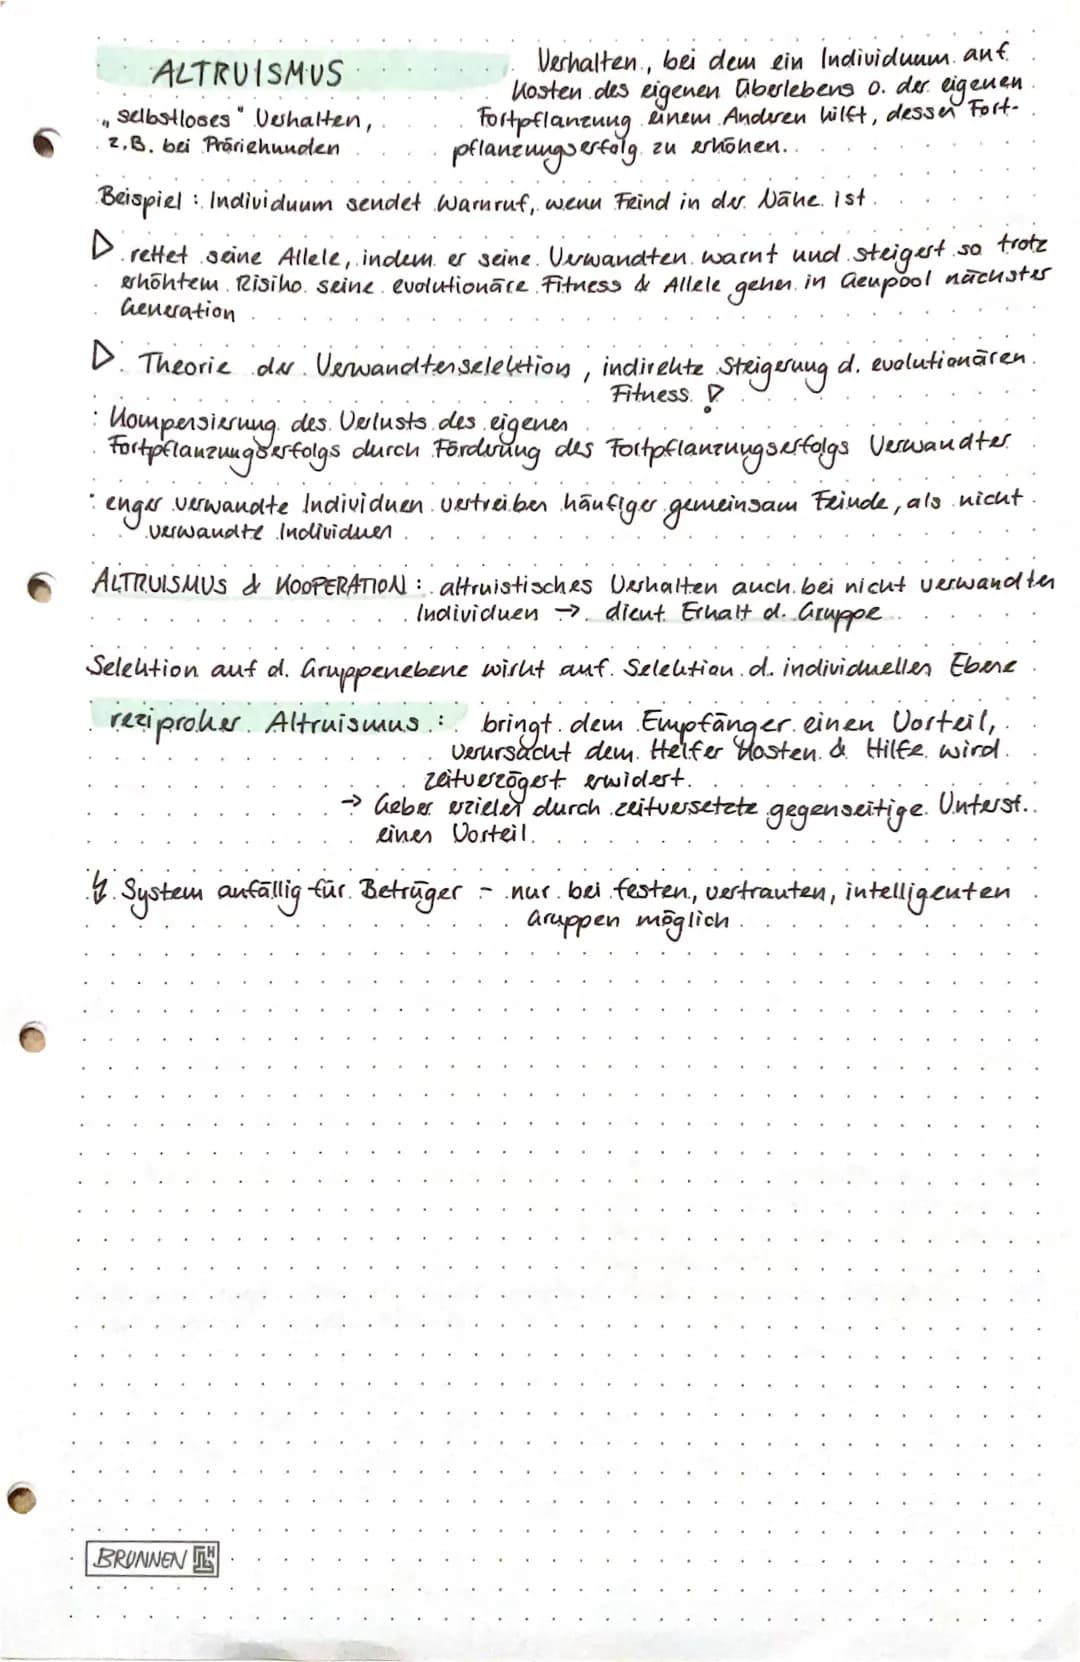 ALTRUISMUS
„selbstloses" Verhalten,
z.B. bei Präriehunden
Verhalten, bei dem ein Individuum auf
Kosten des eigenen Überlebens o. der eigenen
Fortpflanzung einem Anderen hilft, dessen Fort-
pflanzungserfolg zu erhöhen.
Beispiel: Individuum sendet Warnruf, wenn Feind in der Nähe ist.
▷ rettet seine Allele, indem er seine Verwandten warnt und steigert so trotz
erhöhtem Risiko seine evolutionäre Fitness & Allele gehen in Genpool nächster
Generation
▷ Theorie der Verwandtenselektion, indirekte Steigerung d. evolutionären
Fitness
: Kompensierung des Verlusts des eigenen
Fortpflanzungserfolgs durch Förderung des Fortpflanzungserfolgs Verwandter
: enger verwandte Individuen vertreiben häufiger gemeinsam Feinde, als nicht
verwandte Individuen
ALTRUISMUS & KOOPERATION: altruistisches Verhalten auch bei nicht verwandten
Individuen → dient Erhalt d. Gruppe
Selektion auf d. Gruppenebene wirkt auf Selektion d. individuellen Ebene
reziproker Altruismus: bringt dem Empfänger einen Vorteil,
verursacht dem Helfer Kosten & Hilfe wird
zeitverzögert erwidert.
→ Geber erzielet durch zeitversetzte gegenseitige Unterst.
einen Vorteil.
↯ System anfällig für Betrüger - nur bei festen, vertrauten, intelligenten
Gruppen möglich
BRUNNEN